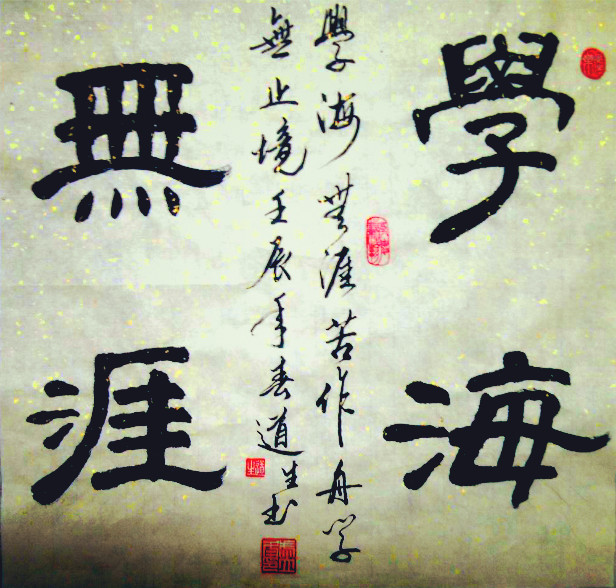 學海
學海無涯苦作舟學
無止境壬辰年春道生书
無涯